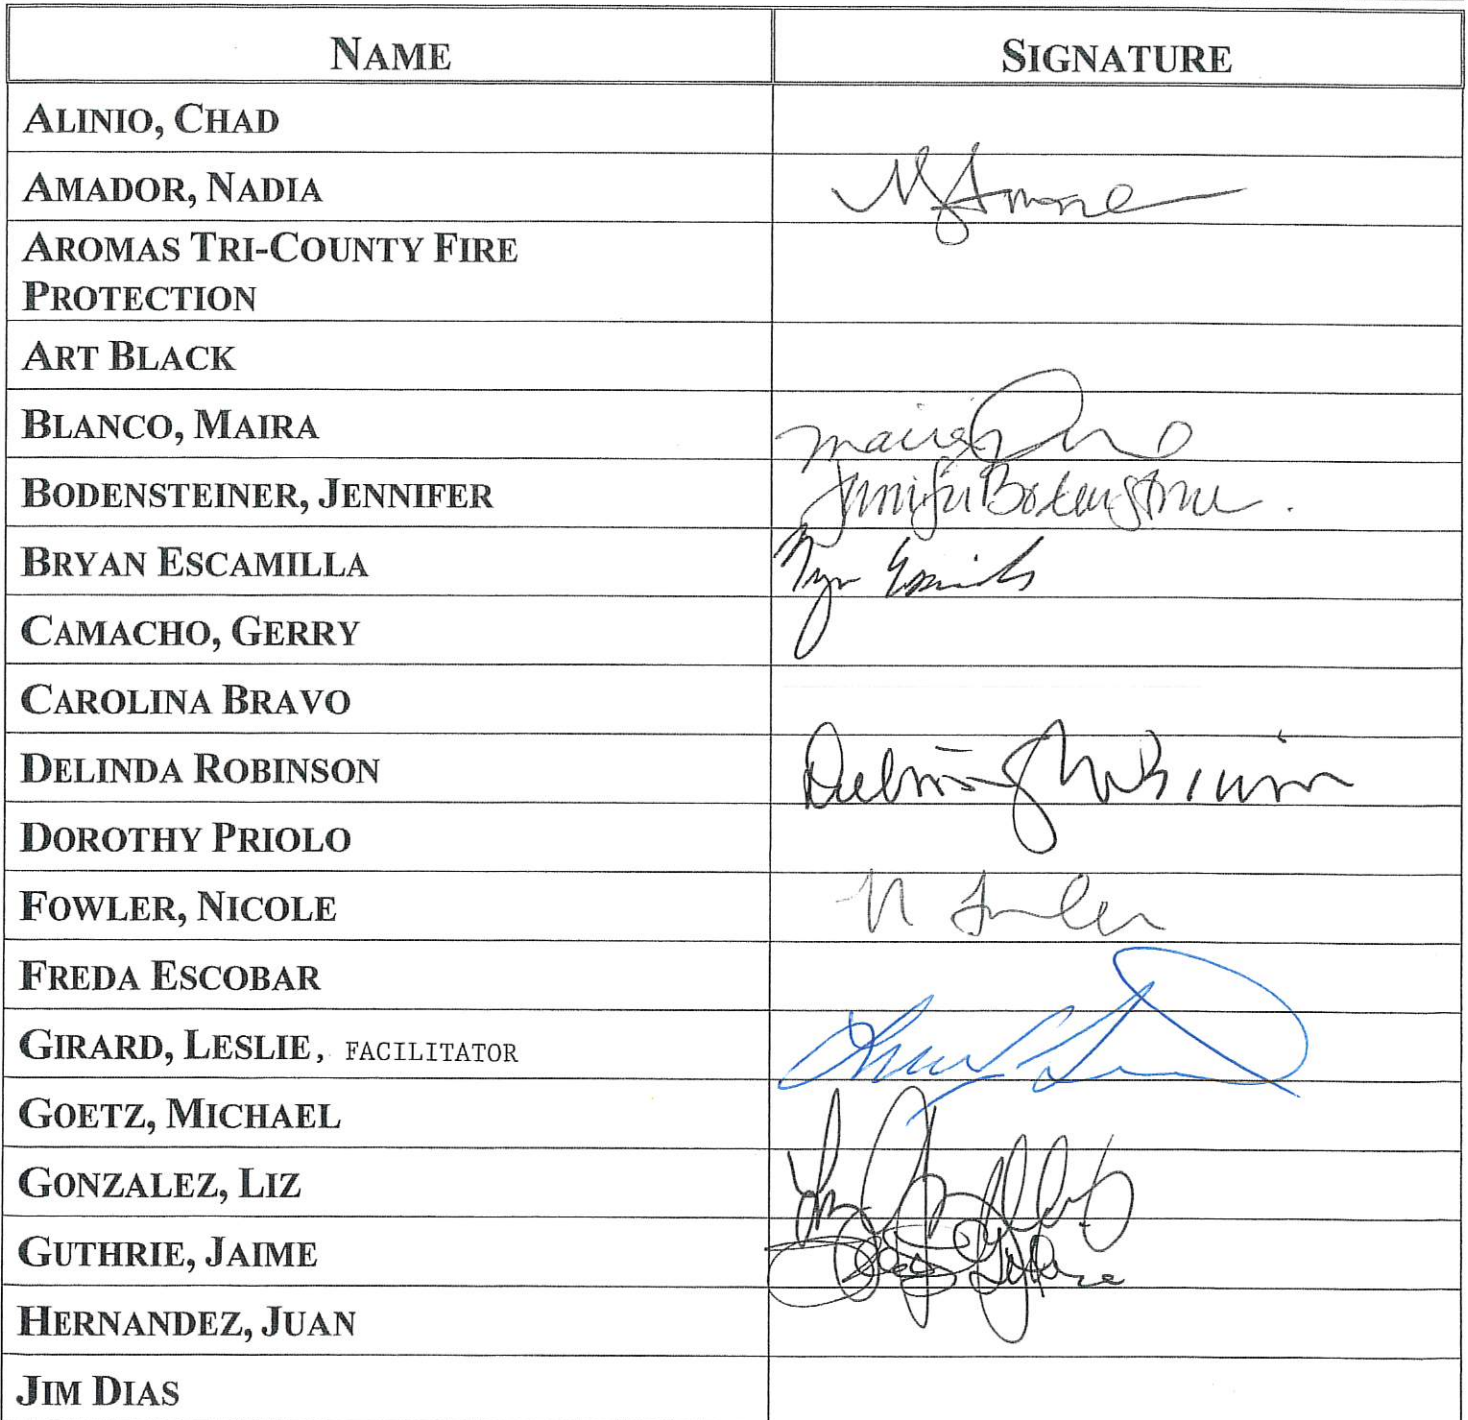 NAME SIGNATURE
ALINIO, CHAD
AMADOR, NADIA
AROMAS TRI-COUNTY FIRE
PROTECTION
ART BLACK
BLANCO, MAIRA Maira
BODENSTEINER, JENNIFER Jennifer Bodensteiner
BRYAN ESCAMILLA
CAMACHO, GERRY
CAROLINA BRAVO
DELINDA ROBINSON Delinda Robinson
DOROTHY PRIOLO
FOWLER, NICOLE N Fowler
FREDA ESCOBAR
GIRARD, LESLIE, FACILITATOR
GOETZ, MICHAEL
GONZALEZ, LIZ
GUTHRIE, JAIME
HERNANDEZ, JUAN
JIM DIAS